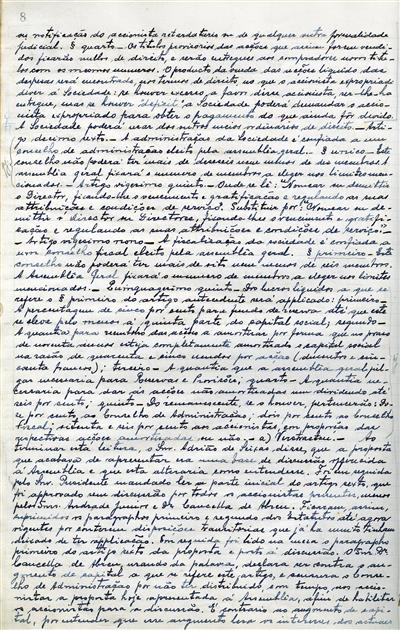 8
ou notificação do accionista retardatario ou de qualquer outra formalidade
judicial. § quarto. Os titulos provisorios das acções que assim forem vendi-
dos ficarão nullos de direito, e serão entregues aos compradores novos titu-
los com os mesmos numeros. O producto da venda das acções liquido das
despesas será encontrado, nos termos de direito, no que o accionista expropriado
dever á Sociedade: se houver excesso, a favor d'esse accionista, ser-lhe-ha
entregue, mas se houver "deficit" a Sociedade poderá demandar o accio-
nista expropriado para obter o pagamento do que ainda fôr devido.
A Sociedade poderá usar dos outros meios ordinarios de direito. — Arti-
go decimo sexto. — A administração da Sociedade é confiada a um
Conselho de administração eleito pela assembleia geral. — § unico — Este
conselho não poderá ter mais de dezeseis nem menos de dez membros. A
assembleia geral fixará o numero de membros a eleger nos limites men-
cionados. — Artigo vigesimo quinto. — Onde se lê: "Nomear ou demittir
o Director, fixando-lhe o vencimento e gratificação e regulando as suas
attribuições e condições de serviço". Substituir por: "Nomear ou de-
mittir o Director ou Directores, fixando-lhes o vencimento e gratifi-
cação e regulando as suas attribuições e condições de serviço".
— Artigo vigesimo nono. — A fiscalização da sociedade é confiada a
um conselho fiscal eleito pela assembleia geral. — § primeiro — Este
conselho não poderá ter mais de sete nem menos de seis membros.
A Assembleia Geral fixará o numero de membros a eleger nos limites
mencionados. — Quinquagesimo quinto — Dos lucros liquidos a que se
refere o § primeiro do artigo antecedente será applicado: primeiro —
A percentagem de cinco por cento para fundo de reserva até que este
se eleve pelo menos á quinta parte do capital social; segundo —
A quantia para reembolso de acções a amortisar por forma que no praso
de noventa annos esteja completamente amortisado o capital social
na razão de quarenta e cinco escudos por acção (duzentos e cin-
coenta francos); terceiro — A quantia que a assembleia geral jul-
gar necessaria para Reservas e Provisões; quarto — A quantia ne-
cessaria para dar ás acções não amortisadas um dividendo até
seis por cento; quinto — Do remanescente, se o houver, pertencerão: Se-
te por cento, ao Conselho de Administração; dois por cento ao Conselho
Fiscal; oitenta e seis por cento aos accionistas, em proporção das
respectivas acções amortisadas ou não. — a) Verstraeten. — Ao
terminar esta leitura, o Snr. Adrião de Seixas disse, que a proposta
que acabava de apresentar era uma base de discussão offerecida
á Assembleia e que esta alteraria como entendesse. Foi em seguida
pelo Snr. Presidente mandado ler a parte inicial do artigo sexto, que
foi approvado sem discussão por todos os accionistas presentes, menos
pelos Snrs. Andrade Junior e Dr. Cancella de Abreu. Ficaram assim,
supprimidos os paragraphos primeiro e segundo dos Estatutos até agora
vigentes por conterem disposições transitorias que já ha muito tinham
deixado de ter applicação. Em seguida foi lido na mesa o paragrapho
primeiro do artigo sexto da proposta e posto á discussão. O Snr. Dr.
Cancella de Abreu, usando da palavra, declara ser contra o au-
gmento de capital a que se refere este artigo, e censura o Conse-
lho de Administração por não ter distribuido em tempo, aos accio-
nistas a proposta hoje apresentada á Assembleia, afim de habilitar
os accionistas para a discussão. É contrario ao augmento de capi-
tal, por entender que esse augmento lesa os interesses dos actuaes